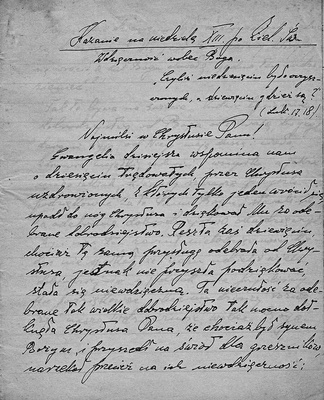 Kazanie na niedzielę XIII. po Ziel. Św.
Wdzięczność wobec Boga.
Czyliż nie dziesięciu było oczysz-
czonych, a dziewięciu gdzież są?
(Łuk. 17, 18)
Najmilsi w Chrystusie Panu!
Ewangelia dzisiejsza wspomina nam
o dziesięciu trędowatych przez Chrystusa
uzdrowionych, z których tylko jeden wrócił się,
upadł do nóg Chrystusa i dziękował Mu za ode-
brane dobrodziejstwo. Reszta zaś dziewięciu,
chociaż tę samą przysługę odebrała od Chry-
stusa, jednak nie przyszła podziękować,
stała się niewdzięczną. Ta niewdzięczność za ode-
brane tak wielkie dobrodziejstwo tak mocno dot-
knęła Chrystusa Pana, że chociaż był synem
Bożym i przyszedł na świat dla grzeszników
narzekał przecież na ich niewdzięczność: